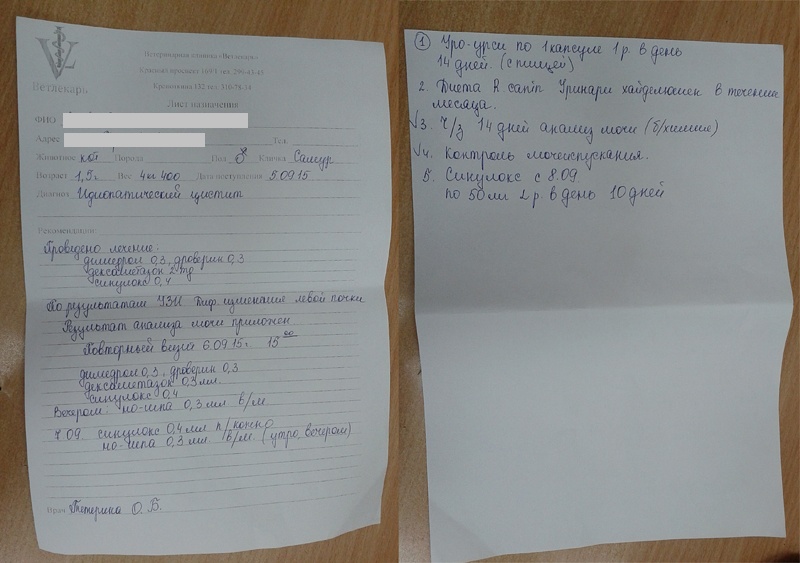 Ветлекарь
Ветеринарная клиника «Ветлекарь»
Красный проспект 169/1 тел. 299-43-45
Кропоткина 132 тел. 310-78-34
Лист назначения
ФИО
Адрес
Тел.
Животное кот Порода Пол ♂ Кличка Самур
Возраст 1,5 г. Вес 4 кг 400 Дата поступления 5.09.15
Диагноз Идиопатический цистит
Рекомендации:
Проведено лечение:
димедрол 0,3, дроверин 0,3
дексаметазон 2 mg
синулокс 0,4
По результатам УЗИ Диф. изменения левой почки
Результат анализа мочи приложен
Повторный визит 6.09.15г. 15 00
димедрол 0,3, дроверин 0,3
дексаметазон 0,3 мл.
синулокс 0,4
Вечером: но-шпа 0,3 мл в/м
7.09. синулокс 0,4 мл п/кожно
но-шпа 0,3 мл. в/м. (утро, вечером)
Врач О. Б.
1 Уро-урси по 1 капсуле 1 р. в день
14 дней. (с пищей)
2. Диета R. canin Уринари хайдемошен в течение
месяца.
√3. Ч/з 14 дней анализ мочи (б/химия)
√4. Контроль мочеиспускания.
5. Синулокс с 8.09.
по 50 мл 2 р. в день 10 дней